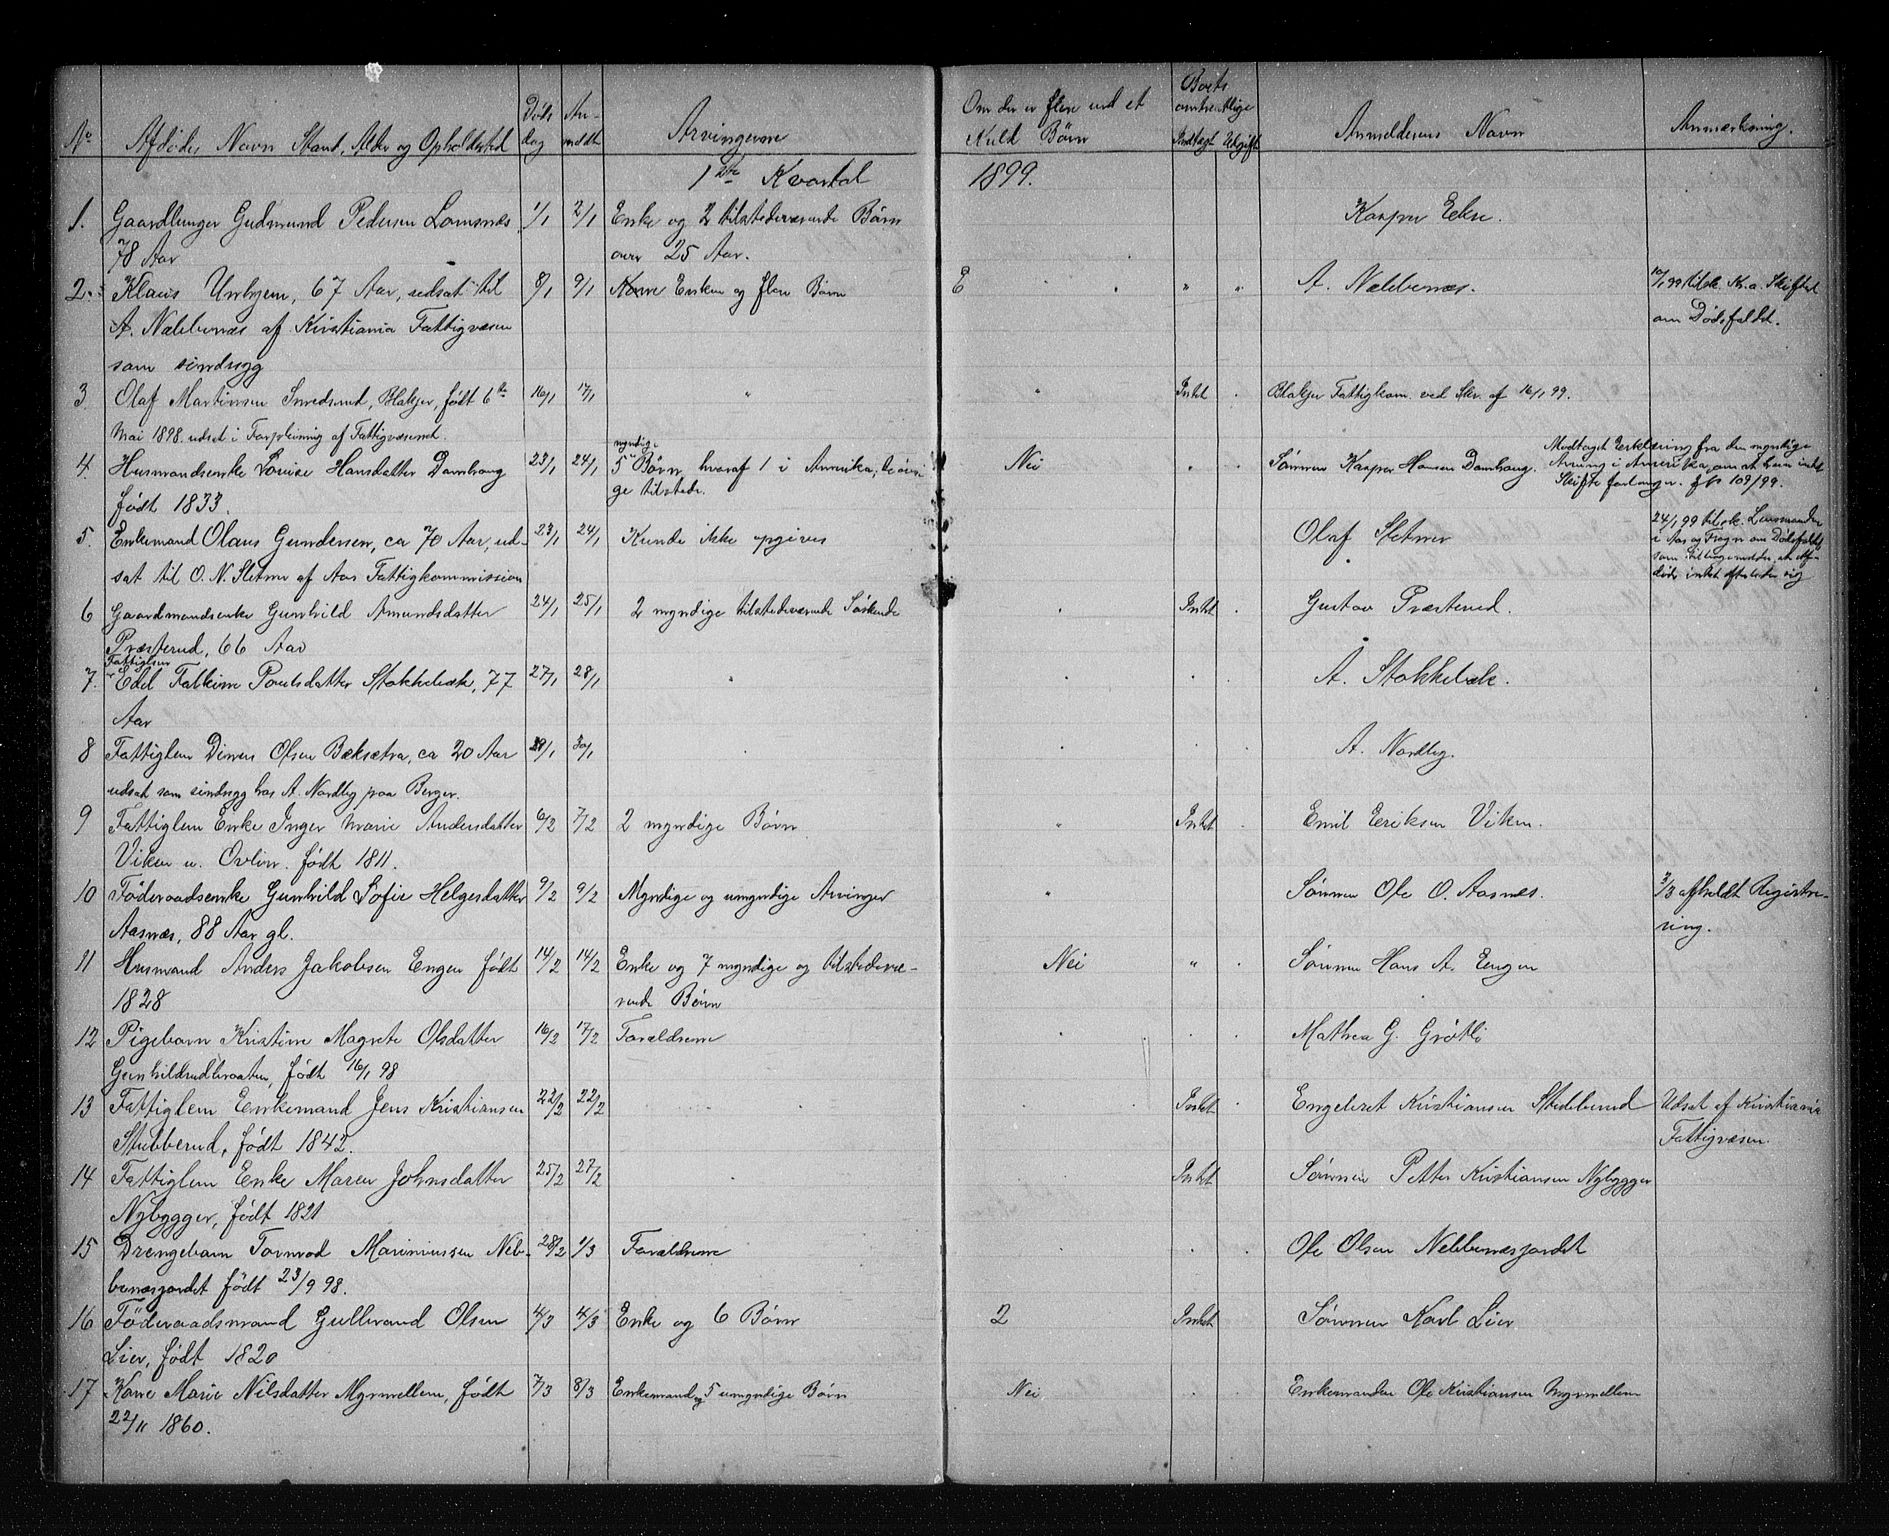 No Afdødes Navn Stand, Alder og Opholdssted Døds dag An- meldt Arvingerne Om der er flere end et Kuld Børn Boets omtrentlige Indtægt Udgift Anmelderens Navn Anmærkning.
1ste Kvartal 1899.
1. Gaardbruger Gudmund Pedersen Lomsnæs 1/1 2/1 Enke og 2 tilstedeværende Børn Kasper Eek
78 Aar over 25 Aar.
2. Klaus 67 Aar, udsat til 8/1 9/1 Enken og flere Børn E " " A. Næbbenæs. 10/1 99 tilsk. Kr.a. Skifteret
A. Næbbenæs af Kristiania Fattigvæsen om Dødsfaldet.
som sindsyg
3. Olaf Martinsen Blakjer, født 6te 16/1 17/1 " " Intet Blakjer Fattigkom. ved Skr. af 16/1 99.
Mai 1898. udsat i Forpleining af Fattigvæsenet.
4. Husmandsenke Lovise Hansdatter Damhoug 23/1 24/1 5 myndige Børn, hvoraf 1 i Amerika, de øvri- Nei Sønnen Kasper Hansen Damhoug. Modtaget Erklæring fra den myndige
født 1833. ge tilstede. Arving i Amerika, om at han intet
Skifte forlanger. 109/99.
5. Enkemand Olaus Gundersen, ca 70 Aar, ud- 23/1 24/1 Kunde ikke opgives Olaf Sletner 24/1 99 tilsk. Lensmanden
sat til O. N. Sletner af Aas Fattigkommission i Aas og Frogn om Dødsfaldet
som tilbagemelder, at af-
døde intet efterlader sig
6 Gaardmandsenke Gunhild Amundsdatter 24/1 25/1 2 myndige tilstedeværende Søskende Intet Gustav Præsterud.
Præsterud, 66 Aar
7. Fattiglem Edel Falkine Poulsdatter Stokkebæk, 77 27/1 28/1 A. Stokkebæk.
Aar
8 Fattiglem Olsen Bæksætra, ca 20 Aar 28/1 30/1 A. Nordby.
udsat som sindsyg hos A. Nordby paa Berger.
9 Fattiglem Enke Inger Marie Andersdatter 6/2 7/2 2 myndige Børn " Intet Emil Eriksen Viken.
Viken u. født 1811.
10 Føderaadsenke Gunhild Sofie Helgesdatter 9/2 9/2 Myndige og umyndige Arvinger " Sønnen Ole O. Aasnæs. 3/3 afholdt Registre-
Aasnæs, 88 Aar gl. ring.
11 Husmand Anders Jakobsen Engen født 14/2 14/2 Enke og 7 myndige og tilstedevæ- Nei " Sønnen Hans A. Engen
1828 rende Børn
12 Pigebarn Kristine Magrete Olsdatter 16/2 17/2 Forældrene Mathea G. Grøtli
født 16/1 98
13 Fattiglem Enkemand Jens Kristiansen 22/2 22/2 Intet Engebret Kristiansen Stubberud Udsat af Kristiania
Stubberud, født 1842. Fattigvæsen.
14 Fattiglem Enke Maren Johnsdatter 25/2 27/2 Intet Sønnen Petter Kristiansen Nybygger
Nybygger, født 1821
15 Drengebarn Tormod Mariniussen Neb- 28/2 1/3 Forældrene Ole Olsen Nebbenæsjordet
benæsjordet født 23/9 98.
16 Føderaadsmand Gulbrand Olsen 4/3 4/3 Enke og 6 Børn 2 Intet Sønnen Karl Lier
Lier, født 1820
17 Kone Marie Nilsdatter Myrmellem, født 7/3 8/3 Enkemand og 5 umyndige Børn Nei Enkemanden Ole Kristiansen Myrmellem
22/11 1860.